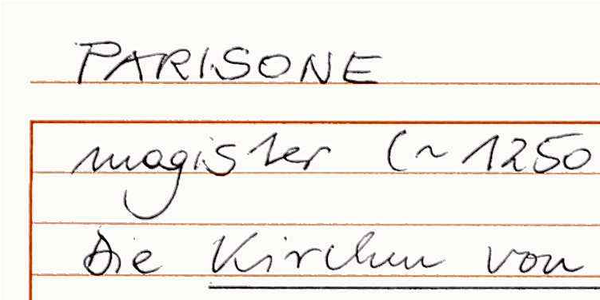 PARISONE
magister (~ 1250
Die Kirchen von